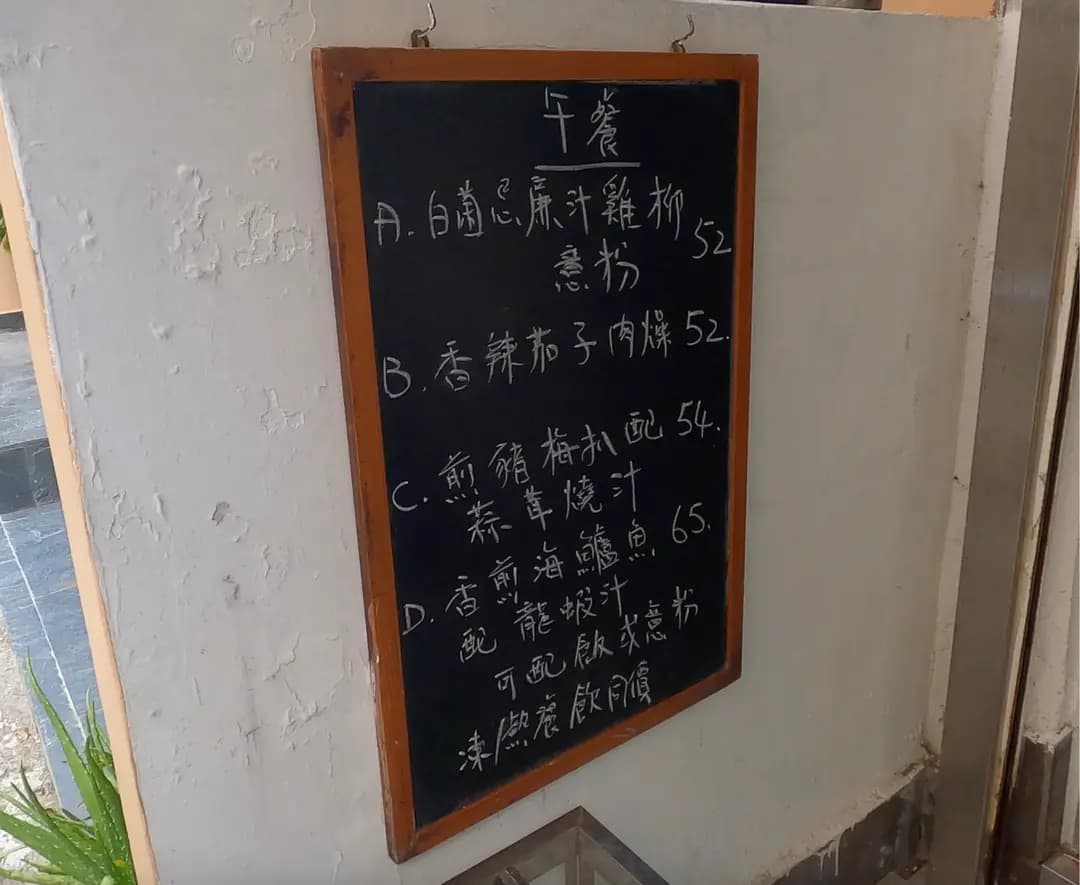 午餐
A. 白菌忌廉汁雞柳
意粉 52
B. 香辣茄子肉燥 52.
C. 煎豬梅扒配 54.
蒜草燒汁
D. 香煎海鱸魚 65.
配龍蝦汁
可配飯或意粉
凍/熱餐飲同價